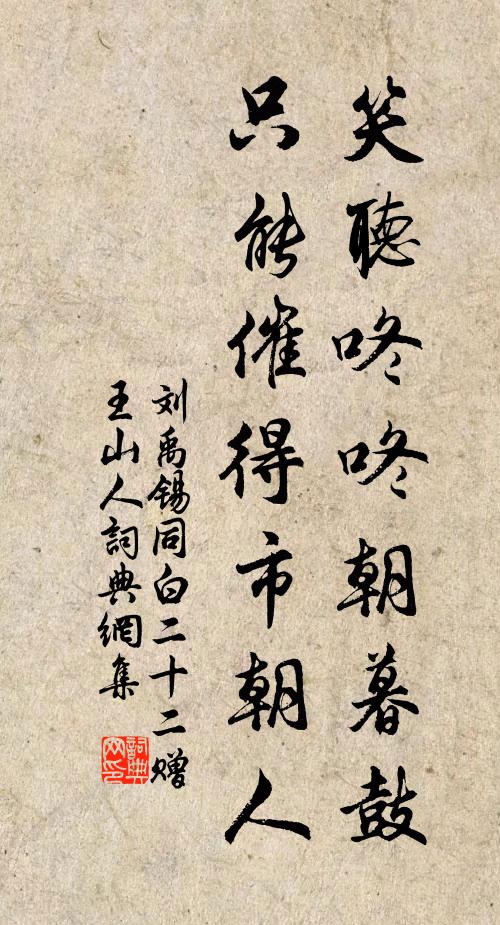 笑聽咚咚朝暮鼓
只能催得市朝人
刘禹锡同白二十二赠
王山人詞典網集
詞典網印